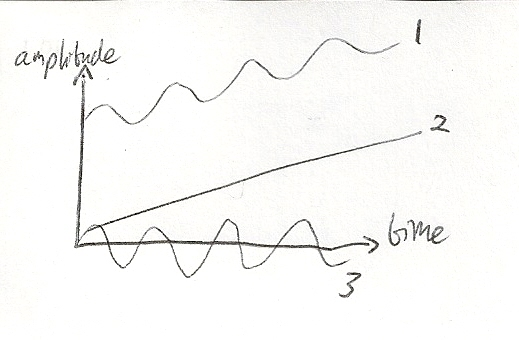 amplitude
1
2
time
3